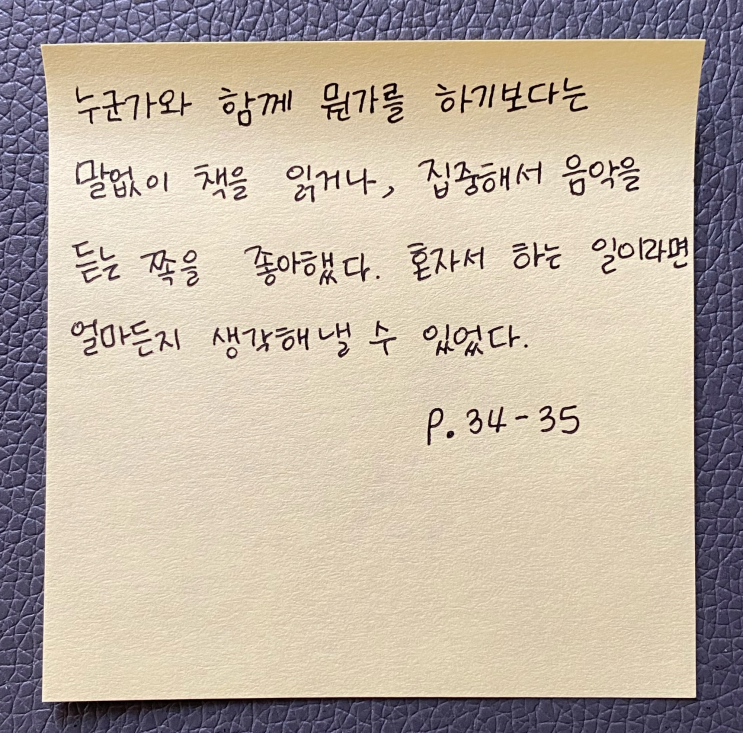 누군가와 함께 뭔가를 하기보다는
말없이 책을 읽거나, 집중해서 음악을
듣는 쪽을 좋아했다. 혼자서 하는 일이라면
얼마든지 생각해낼 수 있었다.
P. 34-35